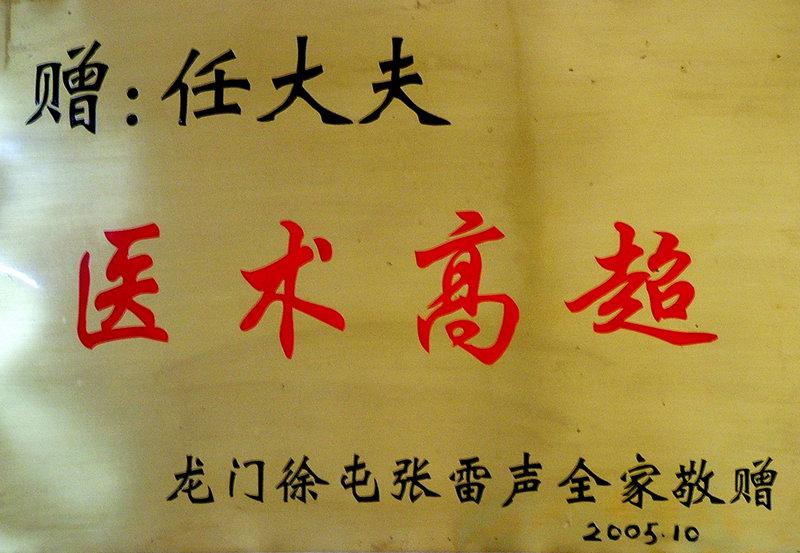 赠:任大夫
医术高超
龙门徐屯张雷声全家敬赠
2005.10